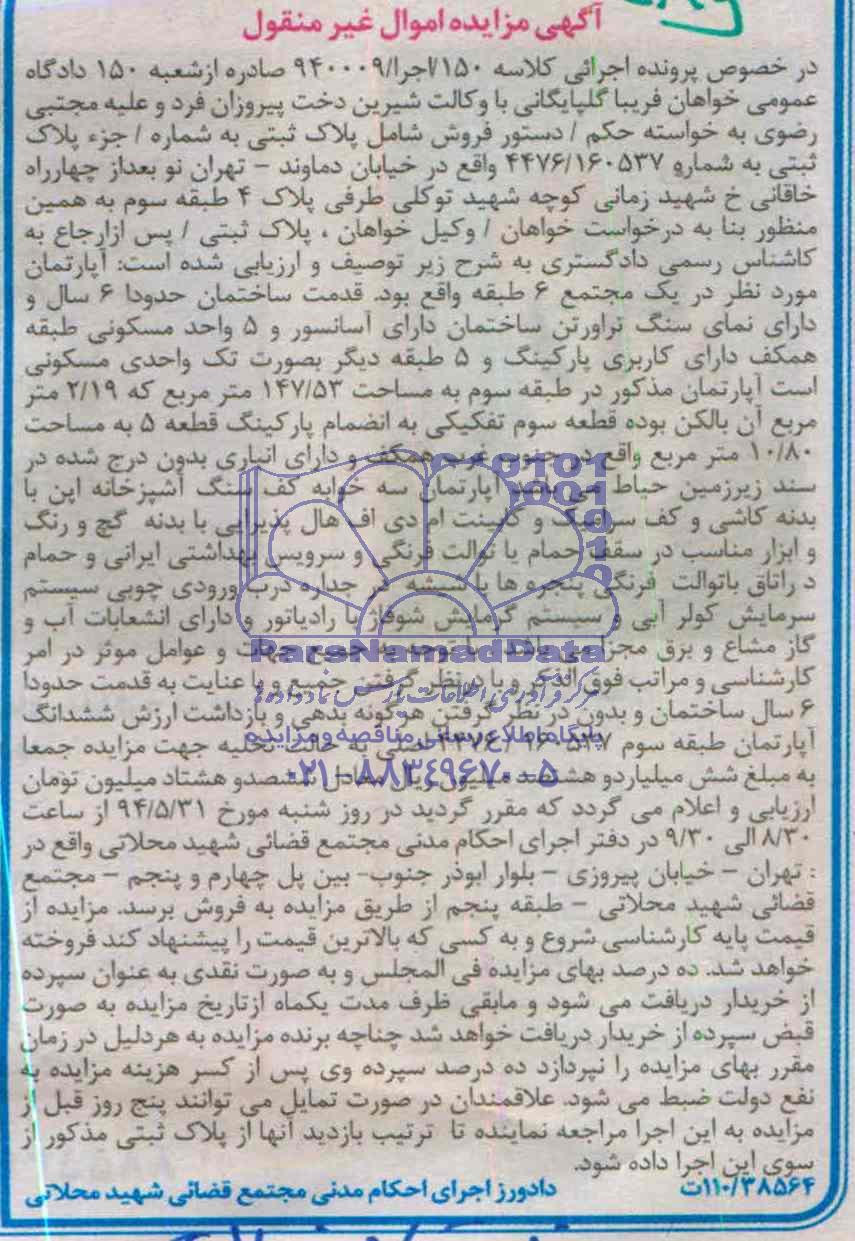 آگهی مزایده اموال غیر منقول
در خصوص پرونده اجرائی کلاسه ۱۵۰/اجرا/۹۴۰۰۰۹ صادره ازشعبه ۱۵۰ دادگاه
عمومی خواهان فریبا گلپایگانی با وکالت شیرین دخت پیروزان فرد و علیه مجتبی
رضوی به خواسته حکم / دستور فروش شامل پلاک ثبتی به شماره / جزء پلاک
ثبتی به شماره ۴۴۷۶/۱۶۰۵۳۷ واقع در خیابان دماوند - تهران نو بعداز چهارراه
خاقانی خ شهید زمانی کوچه شهید توکلی طرفی پلاک ۴ طبقه سوم به همین
منظور بنا به درخواست خواهان / وکیل خواهان ، پلاک ثبتی / پس ازارجاع به
کاشناس رسمی دادگستری به شرح زیر توصیف و ارزیابی شده است: آپارتمان
مورد نظر در یک مجتمع ۶ طبقه واقع بود. قدمت ساختمان حدودا ۶ سال و
دارای نمای سنگ تراورتن ساختمان دارای آسانسور و ۵ واحد مسکونی طبقه
همکف دارای کاربری پارکینگ و ۵ طبقه دیگر بصورت تک واحدی مسکونی
است آپارتمان مذکور در طبقه سوم به مساحت ۱۴۷/۵۳ متر مربع که ۲/۱۹ متر
مربع آن بالکن بوده قطعه سوم تفکیکی به انضمام پارکینگ قطعه ۵ به مساحت
۱۰/۸۰ متر مربع واقع در جنوب غرب همکف و دارای انباری بدون درج شده در
سند زیرزمین حیاط می باشد آپارتمان سه خوابه کف سنگ آشپزخانه اپن با
بدنه کاشی و کف سرامیک و کابینت ام دی اف هال پذیرایی با بدنه گچ و رنگ
و ابزار مناسب در سقف حمام یا توالت فرنگی و سرویس بهداشتی ایرانی و حمام
د راتاق باتوالت فرنگی پنجره ها با شیشه جداره درب ورودی چوبی سیستم
سرمایش کولر آبی و سیستم گرمایش شوفاژ با رادیاتور و دارای انشعابات آب و
گاز مشاع و برق مجزا می باشد. با توجه به جمیع جهات و عوامل موثر در امر
کارشناسی و مراتب فوق الذکر و با در نظر گرفتن جمیع و با عنایت به قدمت حدودا
۶ سال ساختمان و بدون در نظر گرفتن هرگونه بدهی و بازداشت ارزش ششدانگ
آپارتمان طبقه سوم ۱۶۰۵۳۷ / ۴۴۷۶ اصلی به حالت تخلیه جهت مزایده جمعا
به مبلغ شش میلیاردو هشتصد میلیون ریال معادل ششصدو هشتاد میلیون تومان
ارزیابی و اعلام می گردد که مقرر گردید در روز شنبه مورخ ۹۴/۵/۳۱ از ساعت
۸/۳۰ الی ۹/۳۰ در دفتر اجرای احکام مدنی مجتمع قضائی شهید محلاتی واقع در
: تهران - خیابان پیروزی - بلوار ابوذر جنوب- بین پل چهارم و پنجم - مجتمع
قضائی شهید محلاتی - طبقه پنجم از طریق مزایده به فروش برسد. مزایده از
قیمت پایه کارشناسی شروع و به کسی که بالاترین قیمت را پیشنهاد کند فروخته
خواهد شد. ده درصد بهای مزایده فی المجلس و به صورت نقدی به عنوان سپرده
از خریدار دریافت می شود و مابقی ظرف مدت یکماه ازتاریخ مزایده به صورت
قبض سپرده از خریدار دریافت خواهد شد چناچه برنده مزایده به هردلیل در زمان
مقرر بهای مزایده را نپردازد ده درصد سپرده وی پس از کسر هزینه مزایده به
نفع دولت ضبط می شود. علاقمندان در صورت تمایل می توانند پنج روز قبل از
مزایده به این اجرا مراجعه نماینده تا ترتیب بازدید آنها از پلاک ثبتی مذکور از
سوی این اجرا داده شود.
۱۱۰/۳۸۵۶۴ت دادورز اجرای احکام مدنی مجتمع قضائی شهید محلاتی
ParsNamadData
مرکز فرآوری اطلاعات پارس نماد داده ها
پایگاه اطلاع رسانی مناقصه و مزایده
۰۲۱-۸۸۳۴۹۶۷۰-۵